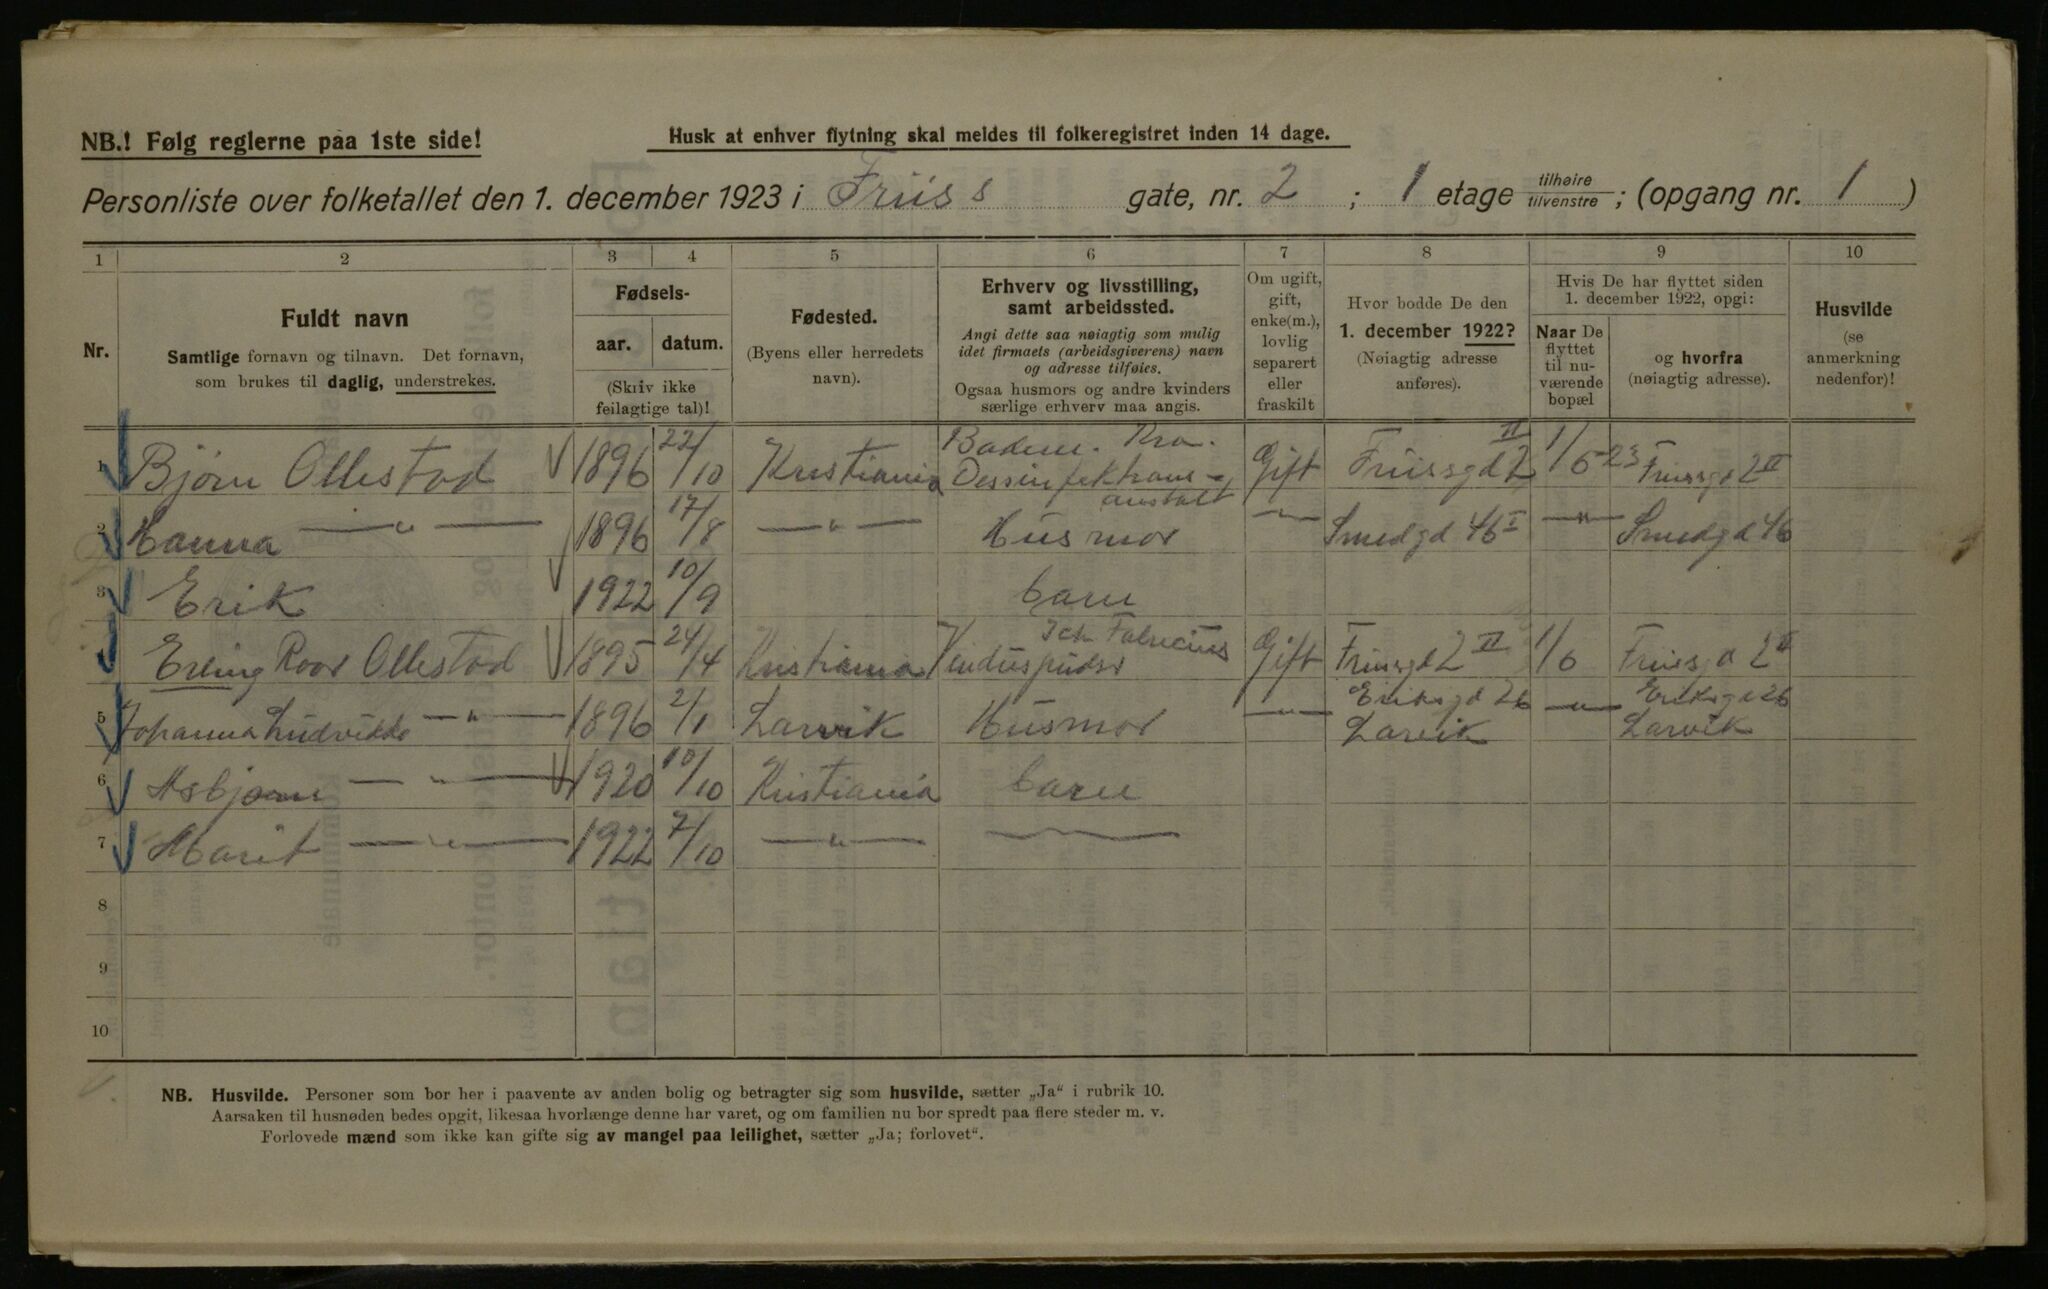 NB.! Følg reglerne paa 1ste side!
Husk at enhver flytning skal meldes til folkeregistret inden 14 dage.
Personliste over folketallet den 1. december 1923 i Friis s gate, nr. 2 ; 1 etage tilhøire tilvenstre ; (opgang nr. 1 )
1 2 3 4 5 6 7 8 9 10
Nr.
Fuldt navn
Samtlige fornavn og tilnavn. Det fornavn,
som brukes til daglig, understrekes.
Fødsels-
aar. datum.
(Skriv ikke
feilagtige tal)!
Fødested.
(Byens eller herredets
navn).
Erhverv og livsstilling,
samt arbeidssted.
Angi dette saa nøiagtig som mulig
idet firmaets (arbeidsgiverens) navn
og adresse tilføies.
Ogsaa husmors og andre kvinders
særlige erhverv maa angis.
Om ugift,
gift,
enke(m.),
lovlig
separert
eller
fraskilt
Hvor bodde De den
1. december 1922?
(Nøiagtig adresse
anføres).
Hvis De har flyttet siden
1. december 1922, opgi:
Naar De
flyttet
til nu-
værende
bopæl
og hvorfra
(nøiagtig adresse).
Husvilde
(se
anmerkning
nedenfor)!
1 Bjørn Ollestad 1896 22/10 Kristiania Badem. Kra. Dessinfektions-anstalt Gift Friisgd 2 II 1/6 23 Friisgd 2 II
2 Hanna — " — 1896 17/8 — " — Husmor — " — Smedgd 46 I — " — Smedgd 46
3 Erik 1922 10/9 barn
4 Erling Roar Ollestad 1895 24/4 Kristiania Vinduspudser Gift Friisgd 2 II 1/6 Friisgd 2 II
5 Johanna Ludvikke — " — 1896 2/1 Larvik Husmor — " — Eriksgd 26 Larvik — " — Eriksgd 26 Larvik
6 Asbjørn — " — 1920 10/10 Kristiania barn
7 Marit — " — 1922 7/10 — " — — " —
8
9
10
NB. Husvilde. Personer som bor her i paavente av anden bolig og betragter sig som husvilde, sætter „Ja“ i rubrik 10.
Aarsaken til husnøden bedes opgit, likesaa hvorlænge denne har varet, og om familien nu bor spredt paa flere steder m. v.
Forlovede mænd som ikke kan gifte sig av mangel paa leilighet, sætter „Ja; forlovet“.